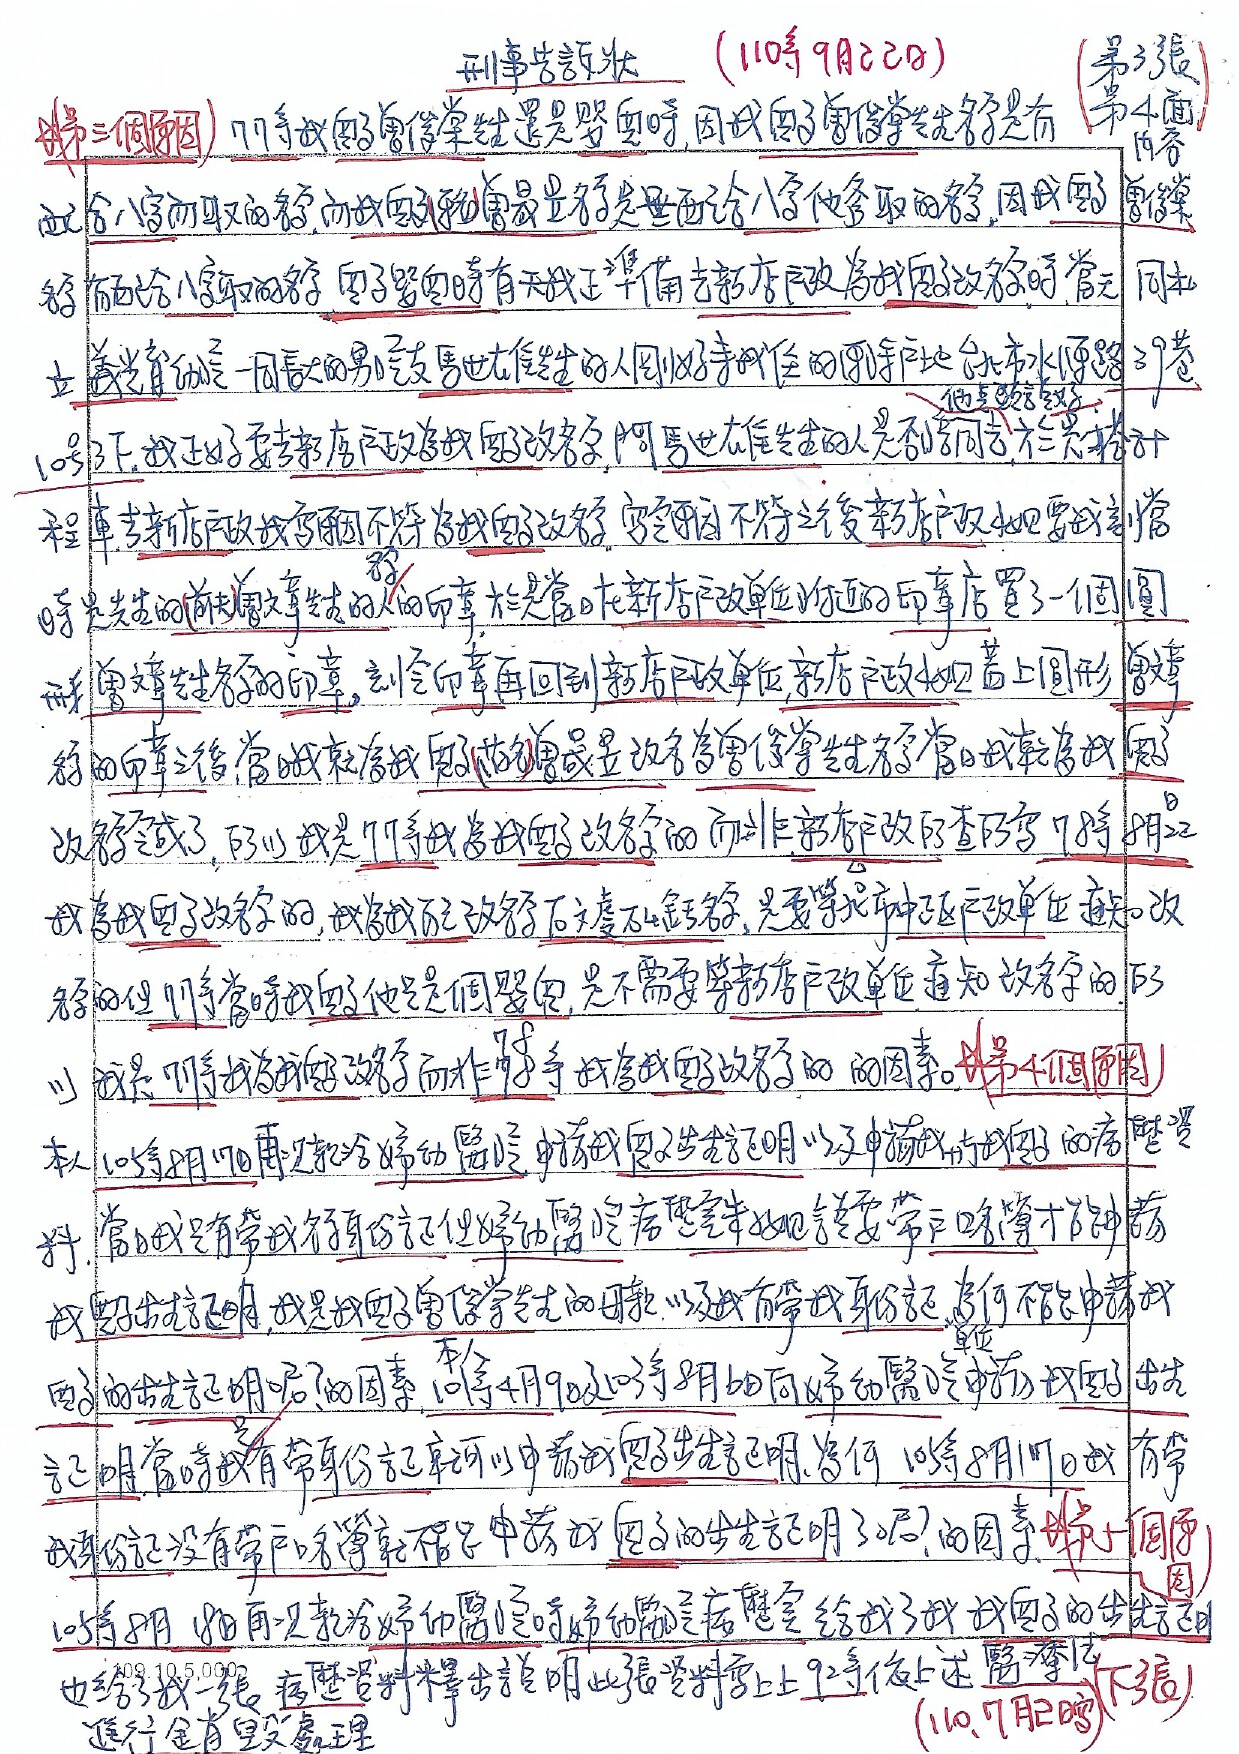 刑事告訴狀 (110年9月22日) (第3張
第4面
內容)
(第三個原因) 77年我兒子曾俊棠先生還是嬰兒時,因我兒子曾俊棠先生名字是有
配合八字而取的名字,而我兒子曾最昱名字是無配合八字他爸取的名字,因我兒子曾俊棠
名字有配合八字取的名字,兒子嬰兒時有天我正準備去新店戶政為我兒子改名字時,當天同私
立義光育幼院一同長大的男院友馬世雄先生的人剛好來我住的戶地台北市水源路39巷
他是說好
10號3F,我正好要去新店戶政為我兒子改名字,問馬世雄先生的人是否陪同去,於是搭計
程車去新店戶政我寫原因不符為我兒子改名字,寫完原因不符之後新店戶政小姐要我刻當
名字
時是先生的(前夫)曾文章先生的人的印章,於是當日在新店戶政單位附近的印章店買了一個圓
形曾文章先生名字的印章。刻完印章再回到新店戶政單位,新店戶政小姐蓋上圓形曾文章
名字的印章之後,當日我就為我兒子(原名)曾最昱改名為曾俊棠先生名字當日我就為我兒子
改名字完成了,所以我是77年我為我兒子改名字的而非新店戶政所查所寫78年8月22日
我為我兒子改名字的,我為我自己改名字,是要等北市中正區戶政單位通知改
名字的但77年當時我兒子他只是個嬰兒,是不需要等新店戶政單位通知改名字的,所
以我是77年我為我兒子改名字而非78年我為我兒子改名字的的因素。(第4個原因)
本人105年8月17日再次親洽婦幼醫院申請我兒子出生証明以及申請我與我兒子的病歷資
料,當日我只有帶我名字身份証但婦幼醫院病歷室朱小姐說要帶戶口名簿才能申請
我兒子出生証明,我是我兒子曾俊棠先生的母親以及我有帶我身份証,為何不能申請我
本人 單位
兒子的出生証明呢?的因素,101年4月9日及103年8月6日向婦幼醫院申請我兒子出生
只
証明,當時我有帶身份証來就可以申請我兒子出生証明,為何105年8月17日我有帶
我身份証沒有帶戶口名簿就不能申請我兒子的出生証明了呢?的因素,(第5個原
因)
105年8月18日再次親洽婦幼醫院時婦幼醫院病歷室給我了我我兒子的出生証明
也給了我一張病歷資料釋出說明此張資料寫上上92年依上述醫療法
進行銷毀處理 (110,7月2日寫) (下張)
109.10.5,000